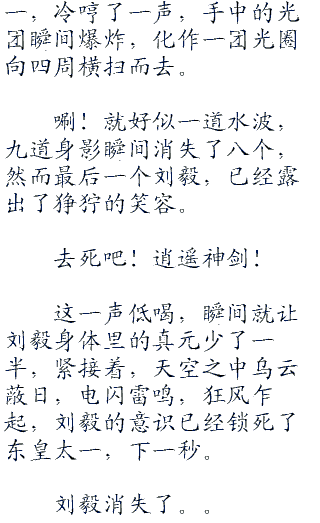 一，冷哼了一声，手中的光
团瞬间爆炸，化作一团光圈
向四周横扫而去。
唰！就好似一道水波，
九道身影瞬间消失了八个，
然而最后一个刘毅，已经露
出了狰狞的笑容。
去死吧！逍遥神剑！
这一声低喝，瞬间就让
刘毅身体里的真元少了一
半，紧接着，天空之中乌云
蔽日，电闪雷鸣，狂风乍
起，刘毅的意识已经锁死了
东皇太一，下一秒。
刘毅消失了。。